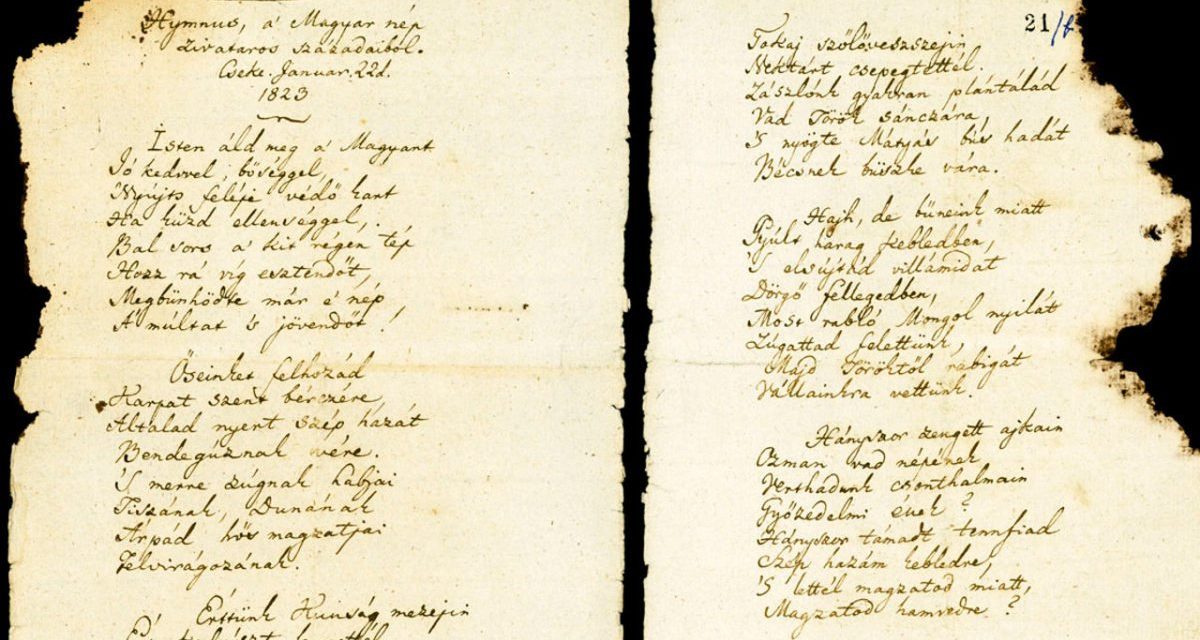 Hymnus, a' Magyar nép
Zivataros századaiból.
Cseke. Januar. 22d.
1823
Isten áld meg a' Magyart
Jó kedvvel, bőséggel,
Nyújts feléje védő kart
Ha küzd ellenséggel,
Bal sors a' kit régen tép
Hozz rá víg esztendőt,
Megbűnhődte már e' nép
A' múltat 's jövendőt!
Őseinket felhozád
Kárpát szent bérczére,
Általad nyert szép hazát
Bendegúznak vére.
'S merre zúgnak habjai
Tiszának, Dunának
Árpád hős magzatjai
Felvirágozának.
Értünk Kunság mezején
21/b
Tokaj szőlővesszejin
Nektárt csepegtettél.
Zászlónk gyakran plántálád
Vad Török sánczára,
'S nyögte Mátyás bús hadát
Bécsnek büszke vára.
Hajh, de bűneink miatt
Gyúlt harag kebledben,
'S elsújtád villámidat
Dörgő fellegedben,
Most rabló Mongol nyilát
Zúgattad felettünk,
Majd Töröktől rabigát
Vállainkra vettünk.
Hányszor zengett ajkain
Ozman vad népének
Vert hadunk csonthalmain
Győzedelmi ének?
Hányszor támadt tennfiad
Szép hazám kebledre,
'S lettél magzatod miatt,
Magzatod hamvedre?